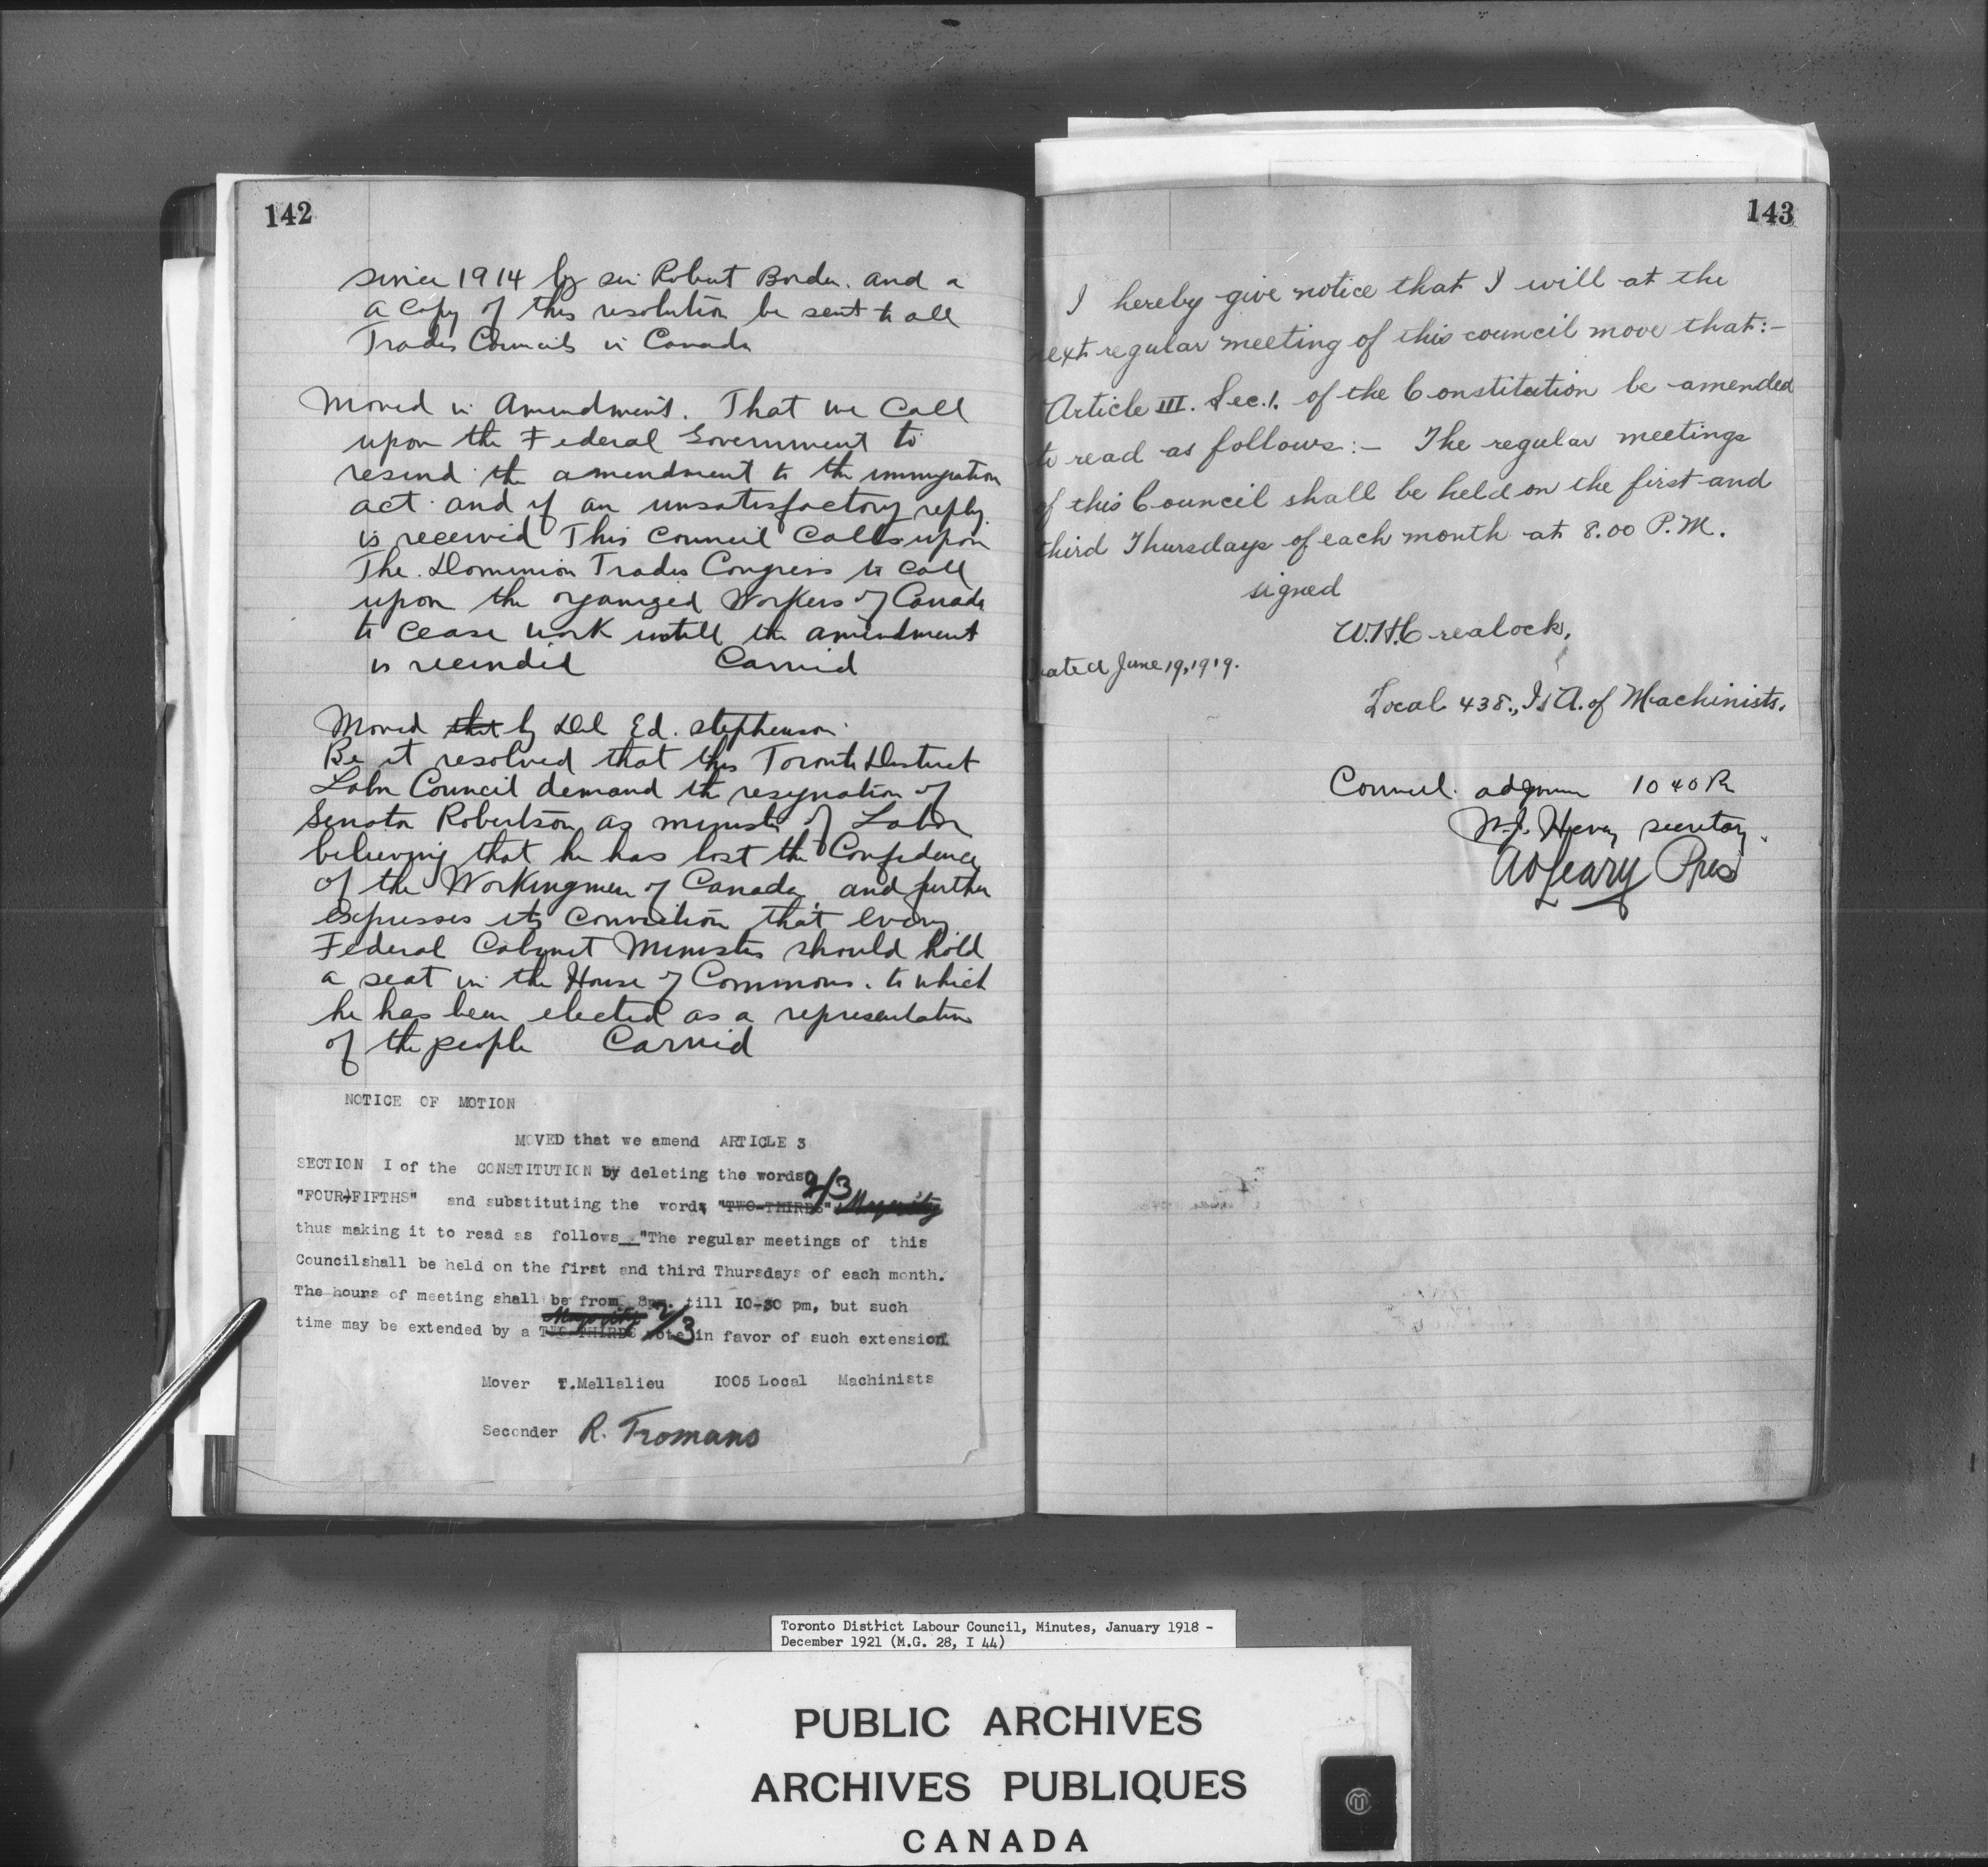 142
since 1914 by sir Robert Borden. and a
a copy of this resolution be sent to all
Trades Councils in Canada
Moved in Amendment. That we Call
upon the Federal Government to
resind the amendment to the immigration
act and if an unsatisfactory reply
is received This Council Calls upon
The Dominion Trades Congress to call
upon the organized Workers of Canada
to cease work untill the amendment
is recinded Carried
Moved that by Del Ed. Stephenson
Be it resolved that this Toronto District
Labor Council demand the resignation of
Senator Robertson as minister of Labor
believing that he has lost the Confidence
of the Workingmen of Canada and further
expresses its conviction that every
Federal Cabynet Minister should hold
a seat in the House of Commons. to which
he has been elected as a representative
of the people Carried
NOTICE OF MOTION
MOVED that we amend ARTICLE 3
SECTION I of the CONSTITUTION by deleting the words
"FOUR-FIFTHS" and substituting the words "TWO-THIRDS" 2/3 Majority
thus making it to read as follows "The regular meetings of this
Councilshall be held on the first and third Thursdays of each month.
The hours of meeting shall be from 8pm. till IO-30 pm, but such
time may be extended by a TWO THIRDS Majority 2/3 vote in favor of such extension
Mover T.Mellalieu I005 Local Machinists
Seconder R. Tromans
143
I hereby give notice that I will at the
next regular meeting of this council move that:-
Article III. Sec.1. of the Constitution be amended
to read as follows:- The regular meetings
of this Council shall be held on the first and
third Thursdays of each month at 8.00 P.M.
signed
W.H.Crealock,
Dated June 19, 1919.
Local 438., I.A. of Machinists.
Council adjourn 10 40 Pm
secretary
Pres
Toronto District Labour Council, Minutes, January 1918 -
December 1921 (M.G. 28, I 44)
PUBLIC ARCHIVES
ARCHIVES PUBLIQUES
CANADA